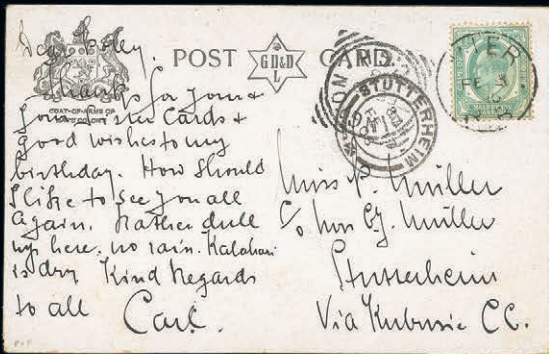 POST CARD
GD&D
L
COAT-OF-ARMS OF
STUTTERHEIM
Thanks for your &
your sister Cards &
good wishes to my
birthday. How should
I like to see you all
again. Rather dull
up here, no rain. Kalahari
is dry Kind Regards
to all Carl.
Miss Müller
C/o Müller
Stutterheim
Via Kubusie CC.